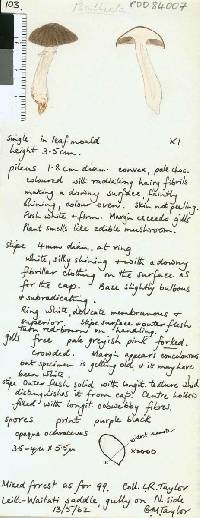 103.
PDD 84007
X1
single in leaf mould
height 3.5cm.
pileus 1.8cm diam. convex, pale choc.
coloured with radiating hairy fibrils
making a downy surface, faintly
shining, colour even. Skin not peeling.
Flesh white & firm. Margin exceeds gills
Plant smells like edible mushroom.
stipe 4mm diam. at ring
white, silky shining & with a downy
fibrillar clothing on the surface as
for the cap. Base slightly bulbous
& subradicating.
Ring white, delicate membranous &
superior. stipe surface & outer flesh
turn red-brown on handling.
gills free pale greyish pink forked.
crowded. Margin appears concolorous
but specimen is getting old & it may have
been white.
stipe Outer flesh solid with longit. texture which
distinguishes it from cap. Centre hollow
filled with longit. cobwebby fibres.
spores print purple black
opaque ochraceous
3.5-4µm x 5.5µm
x2000
Mixed forest as for 99. Coll. G.R. Taylor
Leith-Waitati saddle, gully on N. side
13/5/62 G M Taylor